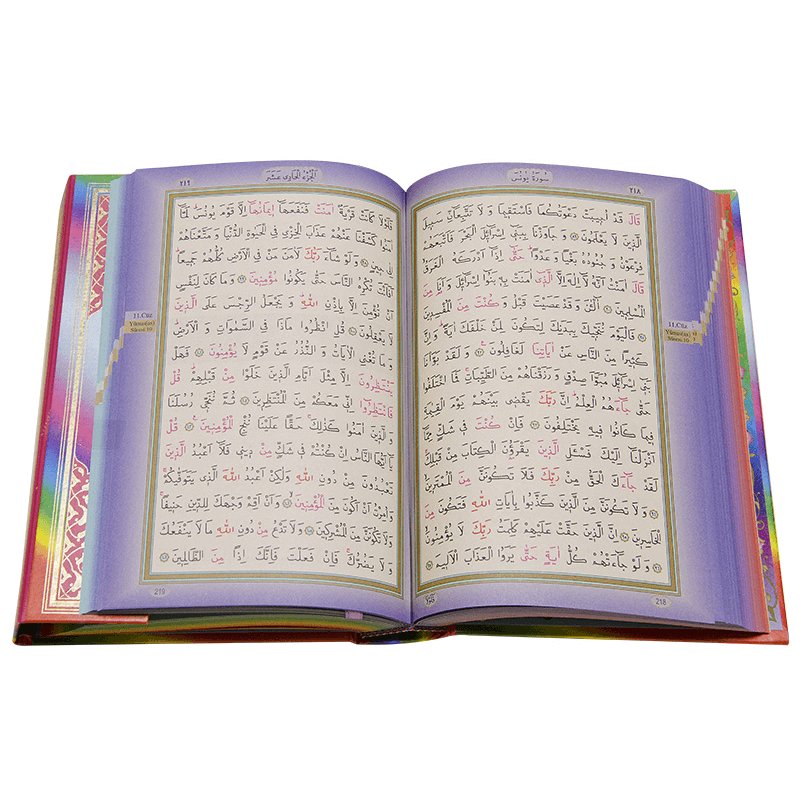 سُورَةُ يُونُسَ
٢١٨
قَالَ قَدْ اُجٖيبَتْ دَعْوَتُكُمَا فَاسْتَقٖيمَا وَلَا تَتَّبِعَٓانِّ سَبٖيلَ
الَّذٖينَ لَا يَعْلَمُونَ ﴿٨٩﴾ وَجَاوَزْنَا بِبَنٖٓي اِسْرَٓائٖلَ الْبَحْرَ فَاَتْبَعَهُمْ
فِرْعَوْنُ وَجُنُودُهُ بَغْيًا وَعَدْوًا حَتّٰٓى اِذَٓا اَدْرَكَهُ الْغَرَقُ
قَالَ اٰمَنْتُ اَنَّهُ لَٓا اِلٰهَ اِلَّا الَّذٖٓي اٰمَنَتْ بِهٖ بَنُٓوا اِسْرَٓائٖلَ وَاَنَا مِنَ
الْمُسْلِمٖينَ ﴿٩٠﴾ آٰلْـٰٔنَ وَقَدْ عَصَيْتَ قَبْلُ وَكُنْتَ مِنَ الْمُفْسِدٖينَ
﴿٩١﴾ فَالْيَوْمَ نُنَجّٖيكَ بِبَدَنِكَ لِتَكُونَ لِمَنْ خَلْفَكَ اٰيَةً وَاِنَّ
كَثٖيرًا مِنَ النَّاسِ عَنْ اٰيَاتِنَا لَغَافِلُونَ ﴿٩٢﴾ وَلَقَدْ بَوَّأْنَا
بَنٖٓي اِسْرَٓائٖلَ مُبَوَّاَ صِدْقٍ وَرَزَقْنَاهُمْ مِنَ الطَّيِّبَاتِ فَمَا اخْتَلَفُوا
حَتّٰى جَٓاءَهُمُ الْعِلْمُ اِنَّ رَبَّكَ يَقْضٖي بَيْنَهُمْ يَوْمَ الْقِيٰمَةِ
فٖيمَا كَانُوا فٖيهِ يَخْتَلِفُونَ ﴿٩٣﴾ فَاِنْ كُنْتَ فٖي شَكٍّ مِمَّٓا
اَنْزَلْنَٓا اِلَيْكَ فَسْـَٔلِ الَّذٖينَ يَقْرَؤُ۫نَ الْكِتَابَ مِنْ قَبْلِكَ
لَقَدْ جَٓاءَكَ الْحَقُّ مِنْ رَبِّكَ فَلَا تَكُونَنَّ مِنَ الْمُمْتَرٖينَ
﴿٩٤﴾ وَلَا تَكُونَنَّ مِنَ الَّذٖينَ كَذَّبُوا بِاٰيَاتِ اللّٰهِ فَتَكُونَ مِنَ
الْخَاسِرٖينَ ﴿٩٥﴾ اِنَّ الَّذٖينَ حَقَّتْ عَلَيْهِمْ كَلِمَتُ رَبِّكَ لَا يُؤْمِنُونَ
﴿٩٦﴾ وَلَوْ جَٓاءَتْهُمْ كُلُّ اٰيَةٍ حَتّٰى يَرَوُا الْعَذَابَ الْاَلٖيمَ ﴿٩٧﴾
11.Cüz
Yûnus(as)
Sûresi:10
218
اَلْجُزْءُ الْحَادٖى عَشَرَ
٢١٩
فَلَوْلَا كَانَتْ قَرْيَةٌ اٰمَنَتْ فَنَفَعَهَٓا اٖيمَانُهَٓا اِلَّا قَوْمَ يُونُسَ لَمَّٓا
اٰمَنُوا كَشَفْنَا عَنْهُمْ عَذَابَ الْخِزْيِ فِي الْحَيٰوةِ الدُّنْيَا وَمَتَّعْنَاهُمْ
اِلٰى حٖينٍ ﴿٩٨﴾ وَلَوْ شَٓاءَ رَبُّكَ لَاٰمَنَ مَنْ فِي الْاَرْضِ كُلُّهُمْ جَمٖيعًا
اَفَاَنْتَ تُكْرِهُ النَّاسَ حَتّٰى يَكُونُوا مُؤْمِنٖينَ ﴿٩٩﴾ وَمَا كَانَ لِنَفْسٍ
اَنْ تُؤْمِنَ اِلَّا بِاِذْنِ اللّٰهِ وَيَجْعَلُ الرِّجْسَ عَلَى الَّذٖينَ
لَا يَعْقِلُونَ ﴿١٠٠﴾ قُلِ انْظُرُوا مَاذَا فِي السَّمٰوَاتِ وَالْاَرْضِ
وَمَا تُغْنِي الْاٰيَاتُ وَالنُّذُرُ عَنْ قَوْمٍ لَا يُؤْمِنُونَ ﴿١٠١﴾ فَهَلْ
يَنْتَظِرُونَ اِلَّا مِثْلَ اَيَّامِ الَّذٖينَ خَلَوْا مِنْ قَبْلِهِمْ قُلْ
فَانْتَظِرُٓوا اِنّٖي مَعَكُمْ مِنَ الْمُنْتَظِرٖينَ ﴿١٠٢﴾ ثُمَّ نُنَجّٖي رُسُلَنَا
وَالَّذٖينَ اٰمَنُوا كَذٰلِكَ حَقًّا عَلَيْنَا نُنْجِ الْمُؤْمِنٖينَ ﴿١٠٣﴾ قُلْ
يَٓا اَيُّهَا النَّاسُ اِنْ كُنْتُمْ فٖي شَكٍّ مِنْ دٖينٖي فَلَٓا اَعْبُدُ الَّذٖينَ
تَعْبُدُونَ مِنْ دُونِ اللّٰهِ وَلٰكِنْ اَعْبُدُ اللّٰهَ الَّذٖي يَتَوَفّٰيكُمْ
وَاُمِرْتُ اَنْ اَكُونَ مِنَ الْمُؤْمِنٖينَ ﴿١٠٤﴾ وَاَنْ اَقِمْ وَجْهَكَ لِلدّٖينِ حَنٖيفًا
وَلَا تَكُونَنَّ مِنَ الْمُشْرِكٖينَ ﴿١٠٥﴾ وَلَا تَدْعُ مِنْ دُونِ اللّٰهِ مَا لَا يَنْفَعُكَ
وَلَا يَضُرُّكَ فَاِنْ فَعَلْتَ فَاِنَّكَ اِذًا مِنَ الظَّالِمٖينَ ﴿١٠٦﴾
11.Cüz
Yûnus(as)
Sûresi:10
219